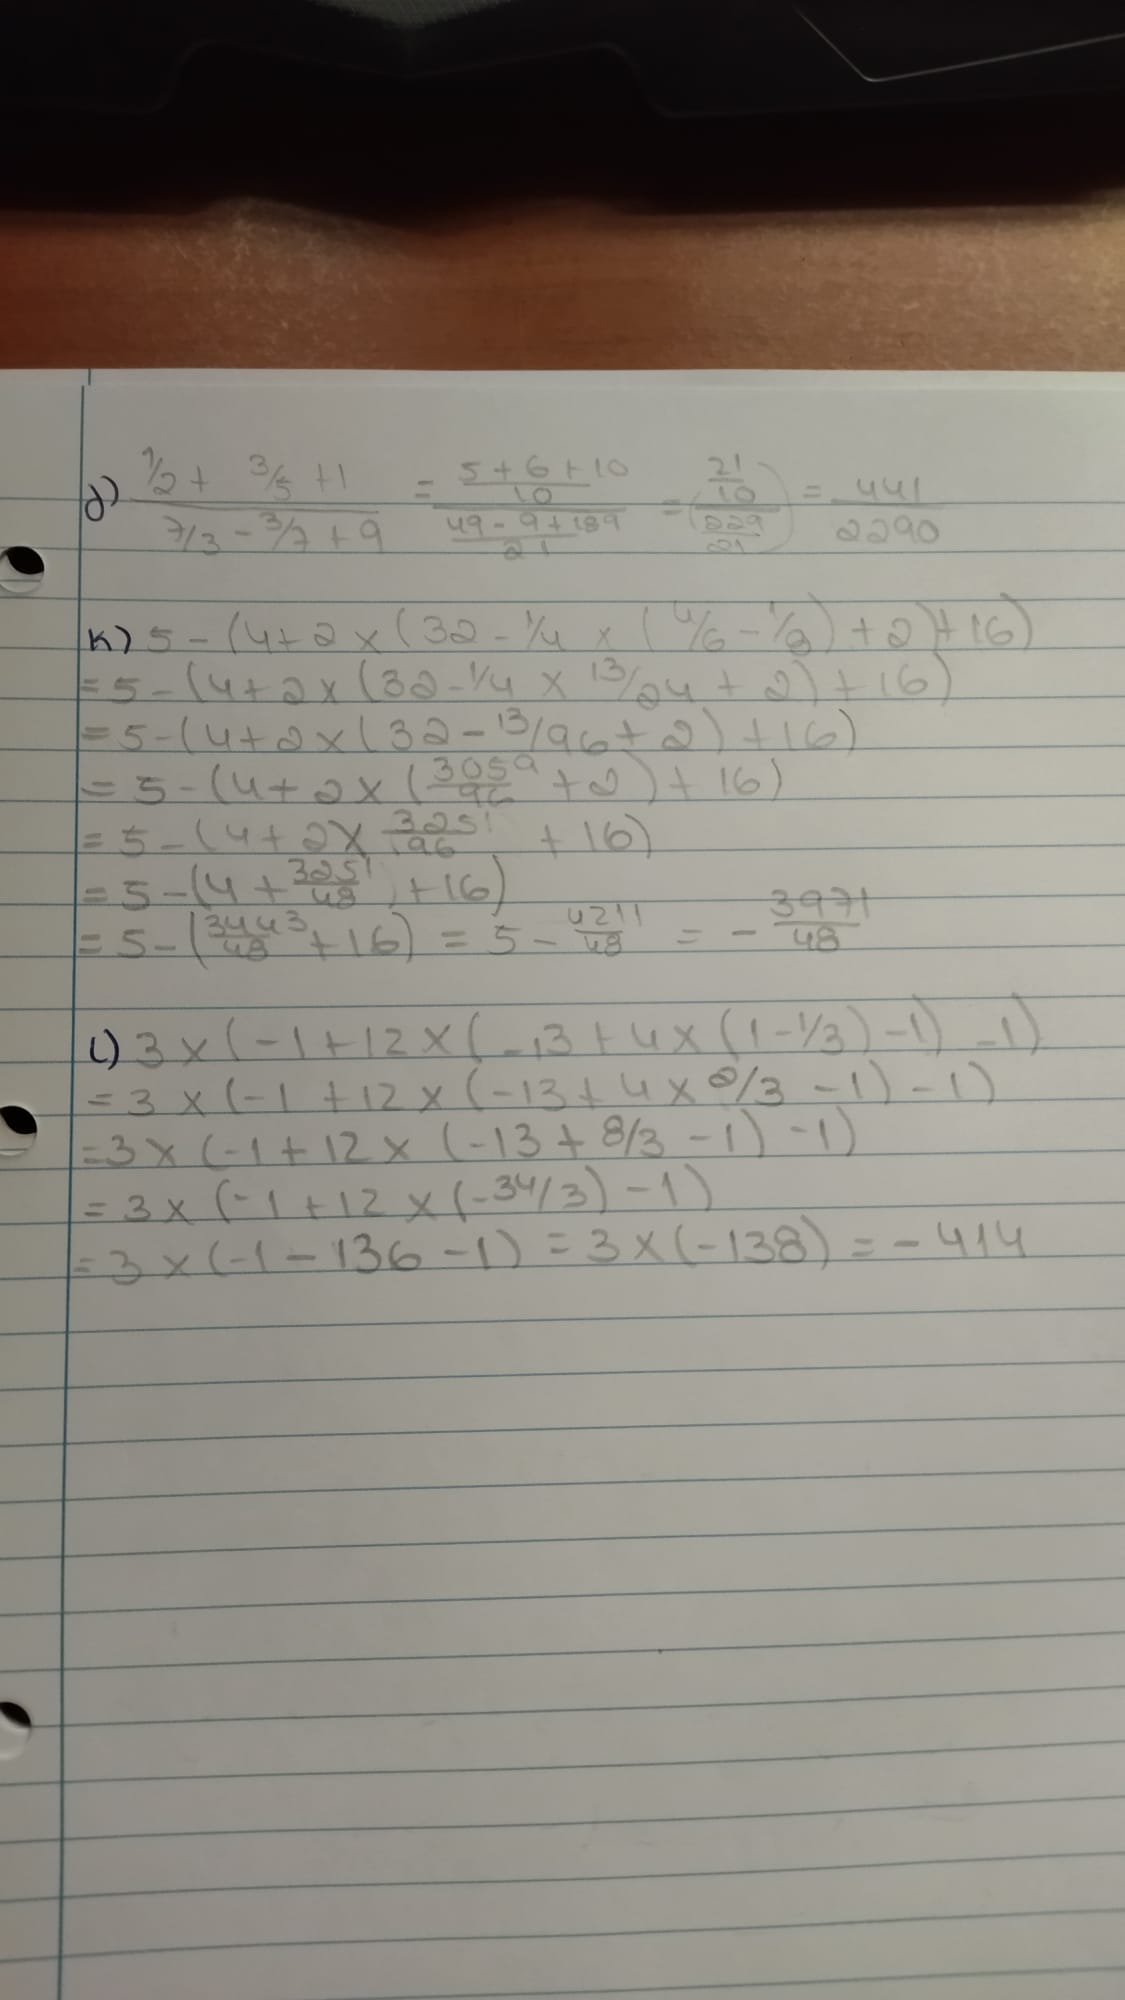 j) (1/2 + 3/5 + 1)/(7/3 - 3/7 + 9) = ((5 + 6 + 10)/10)/((49 - 9 + 189)/21) = ((21/10)/(229/21)) = 441/2290
K) 5 - (4 + 2 × (32 - 1/4 × (4/6 - 1/8) + 2) + 16)
= 5 - (4 + 2 × (32 - 1/4 × 13/24 + 2) + 16)
= 5 - (4 + 2 × (32 - 13/96 + 2) + 16)
= 5 - (4 + 2 × (3059/96 + 2) + 16)
= 5 - (4 + 2 × 3251/96 + 16)
= 5 - (4 + 3251/48 + 16)
= 5 - (3443/48 + 16) = 5 - 4211/48 = - 3971/48
L) 3 × (-1 + 12 × (-13 + 4 × (1 - 1/3) - 1) - 1)
= 3 × (-1 + 12 × (-13 + 4 × 2/3 - 1) - 1)
= 3 × (-1 + 12 × (-13 + 8/3 - 1) - 1)
= 3 × (-1 + 12 × (-34/3) - 1)
= 3 × (-1 - 136 - 1) = 3 × (-138) = - 414